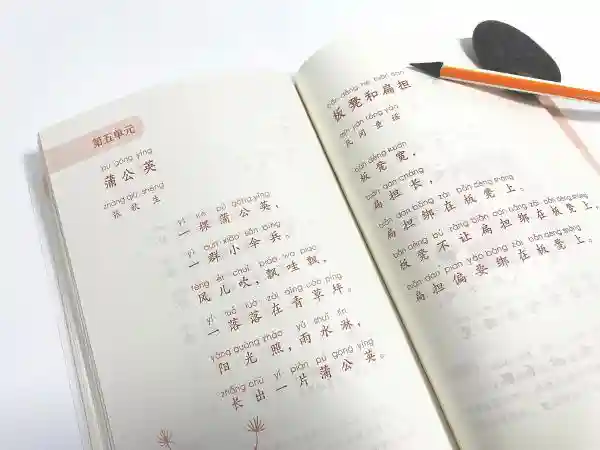 第五单元
pú gōng yīng
蒲公英
zhāng qiū shēng
张秋生
yì kē pú gōng yīng
一棵蒲公英，
yì qún xiǎo sǎn bīng
一群小伞兵。
fēng ér chuī piāo wa piāo
风儿吹，飘哇飘，
yí luò luò zài qīng cǎo píng
一落落在青草坪。
yáng guāng zhào yǔ shuǐ lín
阳光照，雨水淋，
zhǎng chū yí piàn pú gōng yīng
长出一片蒲公英。
bǎn dèng hé biǎn dan
板凳和扁担
mín jiān tóng yáo
民间童谣
bǎn dèng kuān
板凳宽，
biǎn dan cháng
扁担长，
biǎn dan bǎng zài bǎn dèng shàng
扁担绑在板凳上。
bǎn dèng bú ràng biǎn dan bǎng zài bǎn dèng shàng
板凳不让扁担绑在板凳上，
biǎn dan piān yào bǎng zài bǎn dèng shàng
扁担偏要绑在板凳上。